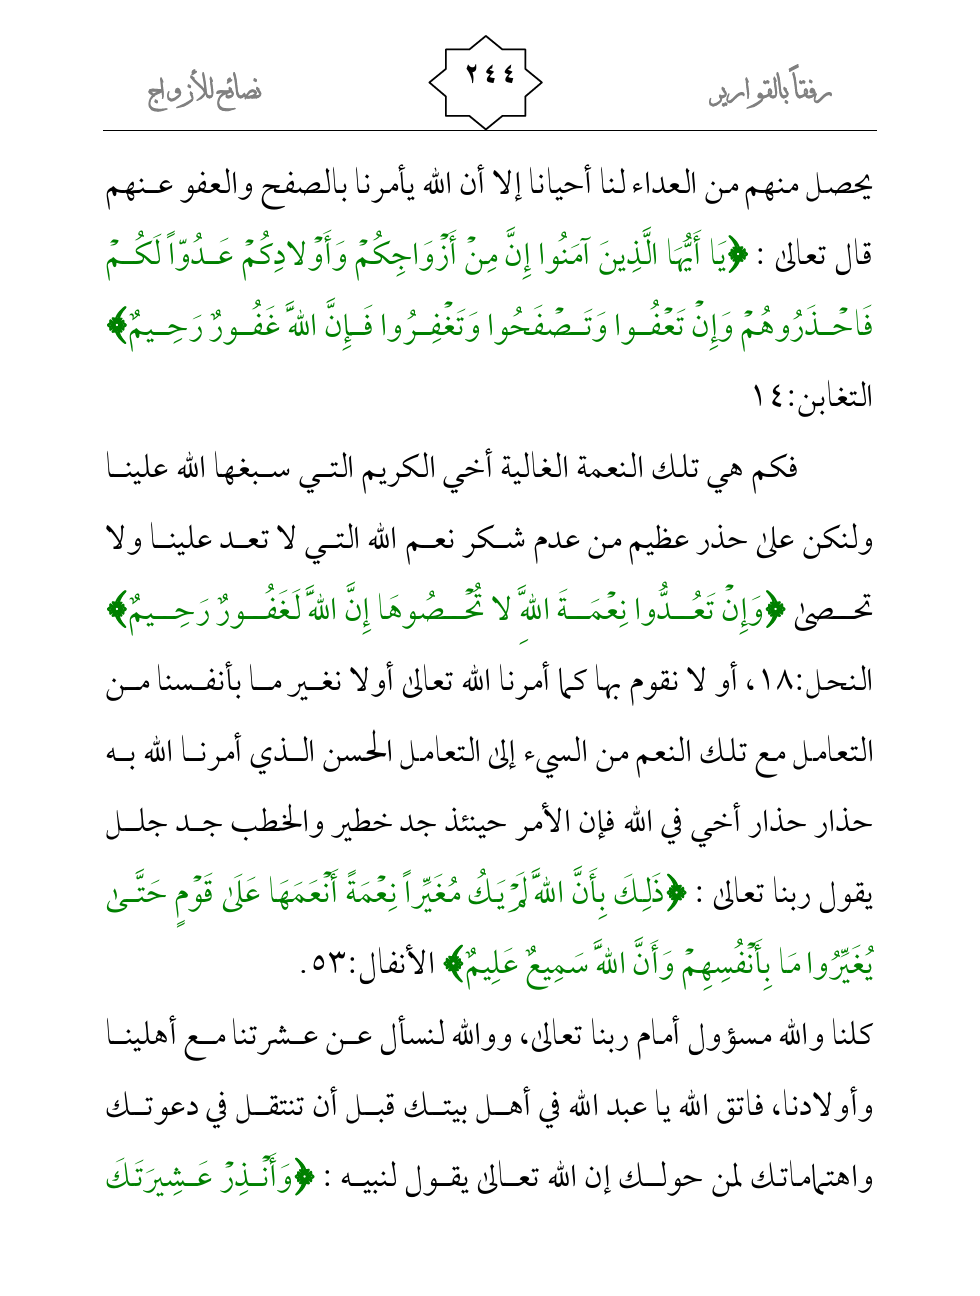 رفقاً بالقوارير
٢٤٤
نصائح للأزواج
يحصل منهم من العداء لنا أحيانا إلا أن الله يأمرنا بالصفح والعفو عنهم
قال تعالى : ﴿يَا أَيُّهَا الَّذِينَ آمَنُوا إِنَّ مِنْ أَزْوَاجِكُمْ وَأَوْلادِكُمْ عَدُوّاً لَكُمْ
فَاحْذَرُوهُمْ وَإِنْ تَعْفُوا وَتَصْفَحُوا وَتَغْفِرُوا فَإِنَّ اللهَّ غَفُورٌ رَحِيمٌ﴾
التغابن:١٤
فكم هي تلك النعمة الغالية أخي الكريم التي سبغها الله علينا
ولنكن على حذر عظيم من عدم شكر نعم الله التي لا تعد علينا ولا
تحصى ﴿وَإِنْ تَعُدُّوا نِعْمَةَ اللهَِّ لا تُحْصُوهَا إِنَّ اللهَّ لَغَفُورٌ رَحِيمٌ﴾
النحل:١٨، أو لا نقوم بها كما أمرنا الله تعالى أولا نغير ما بأنفسنا من
التعامل مع تلك النعم من السيء إلى التعامل الحسن الذي أمرنا الله به
حذار حذار أخي في الله فإن الأمر حينئذ جد خطير والخطب جد جلل
يقول ربنا تعالى : ﴿ذَلِكَ بِأَنَّ اللهَّ لَمْ يَكُ مُغَيِّراً نِعْمَةً أَنْعَمَهَا عَلَى قَوْمٍ حَتَّى
يُغَيِّرُوا مَا بِأَنْفُسِهِمْ وَأَنَّ اللهَّ سَمِيعٌ عَلِيمٌ﴾ الأنفال:٥٣.
كلنا والله مسؤول أمام ربنا تعالى، ووالله لنسأل عن عشرتنا مع أهلينا
وأولادنا، فاتق الله يا عبد الله في أهل بيتك قبل أن تنتقل في دعوتك
واهتماماتك لمن حولك إن الله تعالى يقول لنبيه : ﴿وَأَنْذِرْ عَشِيرَتَكَ